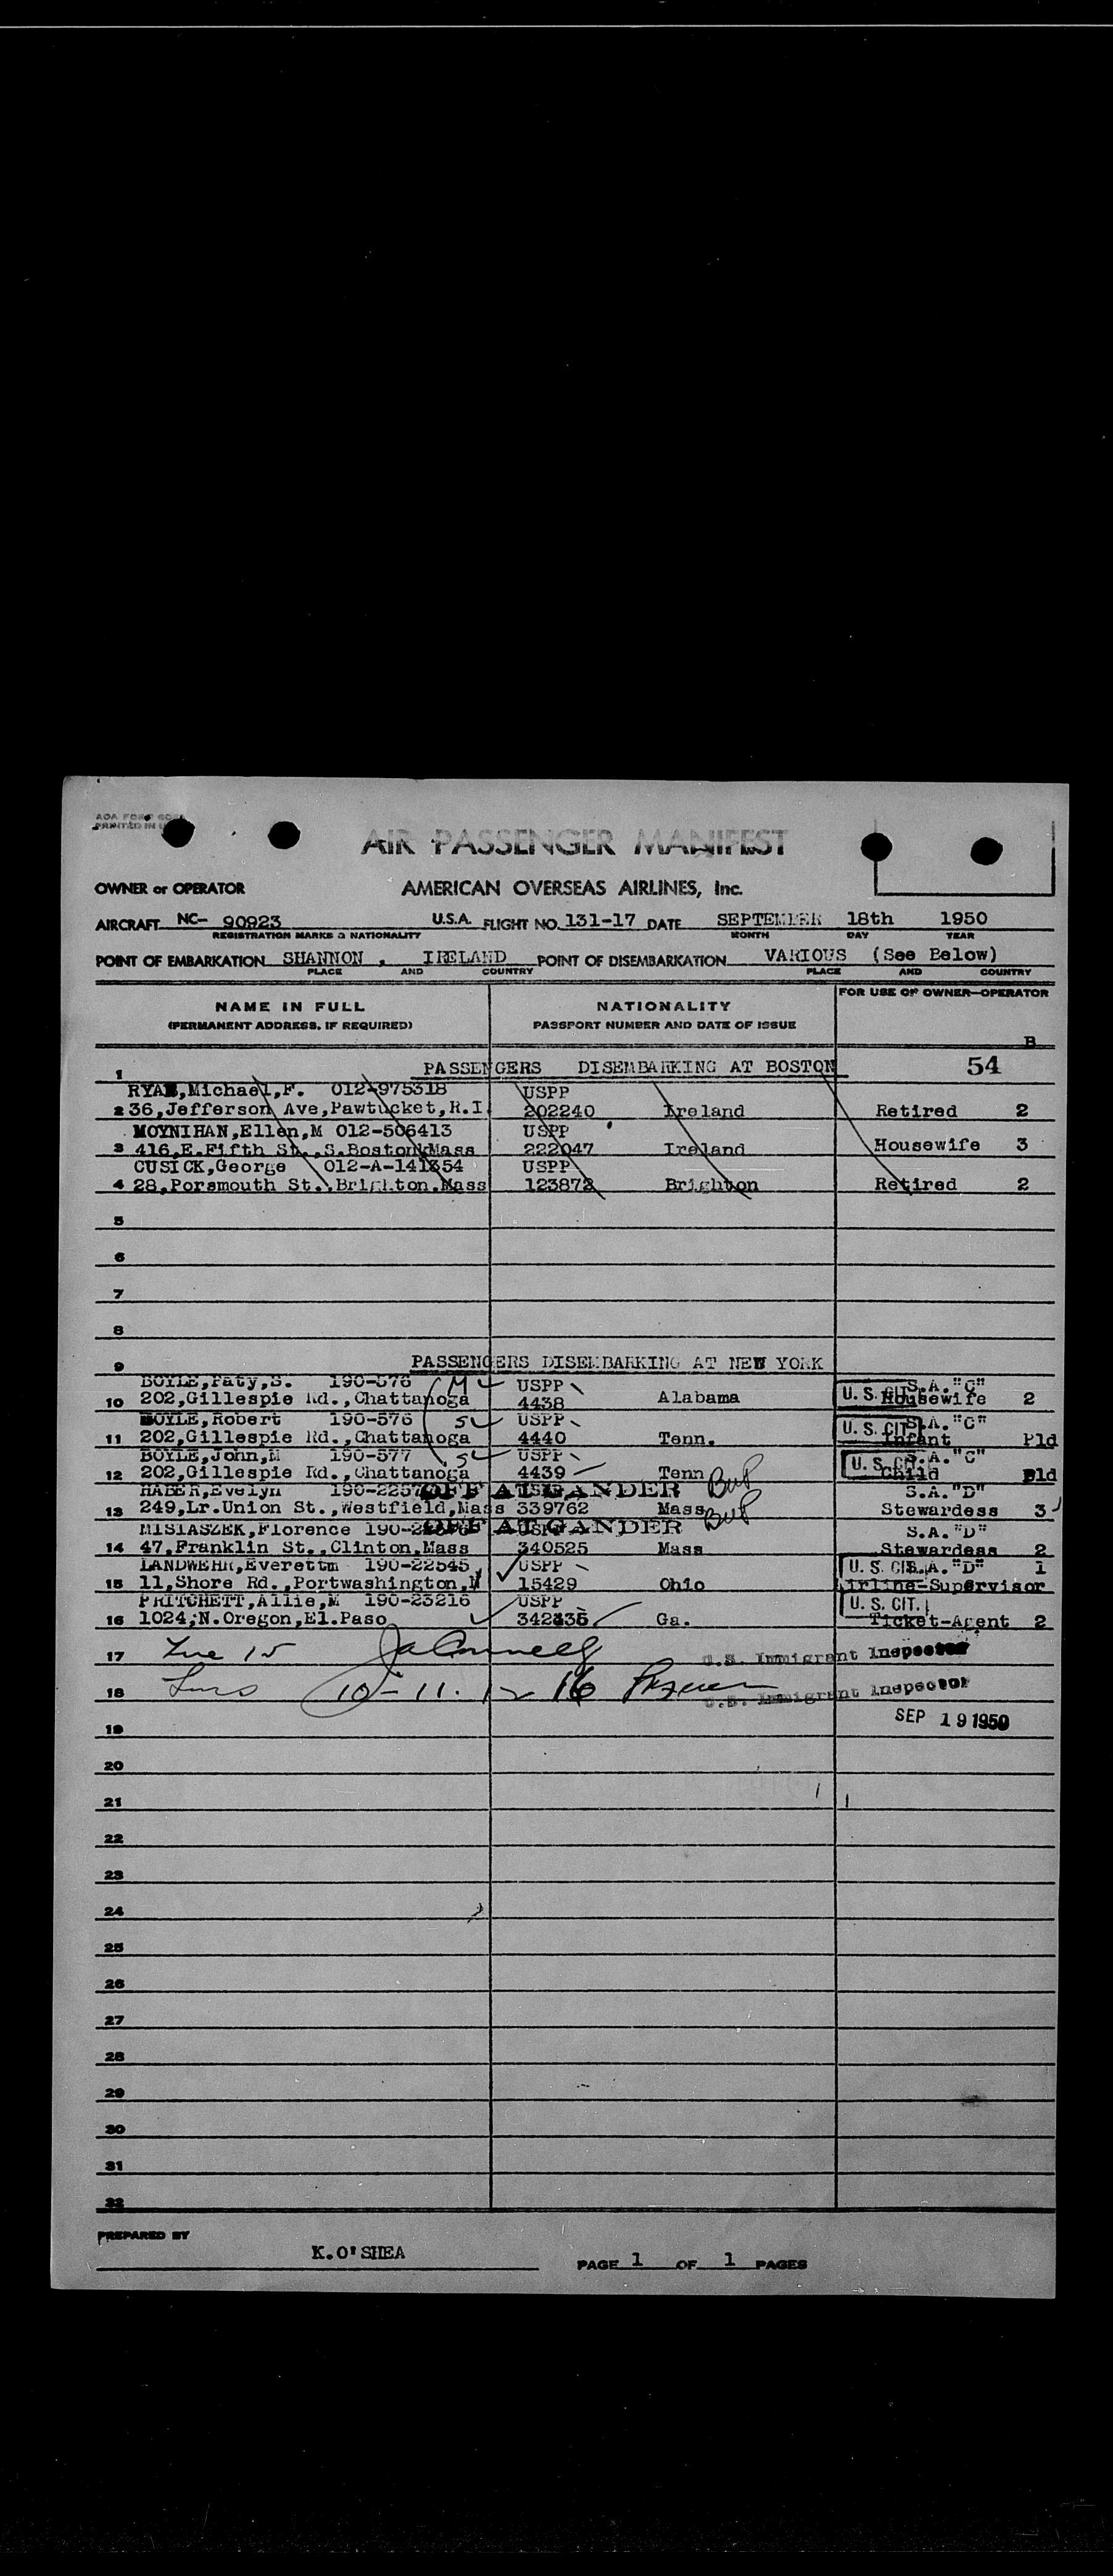 AIR PASSENGER MANIFEST
OWNER or OPERATOR AMERICAN OVERSEAS AIRLINES, Inc.
AIRCRAFT NC- 90923 U.S.A. FLIGHT NO. 131-17 DATE SEPTEMBER 18th 1950
REGISTRATION MARKS & NATIONALITY MONTH DAY YEAR
POINT OF EMBARKATION SHANNON , IRELAND POINT OF DISEMBARKATION VARIOUS (See Below)
PLACE AND COUNTRY PLACE AND COUNTRY
NAME IN FULL NATIONALITY FOR USE OF OWNER—OPERATOR
(PERMANENT ADDRESS, IF REQUIRED) PASSPORT NUMBER AND DATE OF ISSUE
B
1 PASSENGERS DISEMBARKING AT BOSTON 54
RYAN,Michael,F. 012-975318 USPP
2 36,Jefferson Ave,Pawtucket,R.I. 202240 Ireland Retired 2
MOYNIHAN,Ellen,M 012-506413 USPP
3 416,E.Fifth St.,S.Boston,Mass 222047 Ireland Housewife 3
CUSICK,George 012-A-141354 USPP
4 28,Porsmouth St.,Brighton,Mass 123872 Brighton Retired 2
5
6
7
8
9 PASSENGERS DISEMBARKING AT NEW YORK
BOYLE,Paty,S. 190-576 M USPP S.A. "C"
10 202,Gillespie Rd.,Chattanoga 4438 Alabama U. S. CIT. Housewife 2
BOYLE,Robert 190-576 S USPP S.A. "C"
11 202,Gillespie Rd.,Chattanoga 4440 Tenn. U. S. CIT. Infant Pld
BOYLE,John,M 190-577 S USPP S.A. "C"
12 202,Gillespie Rd.,Chattanoga 4439 Tenn U. S. CIT. Child Pld
HABER,Evelyn OFF AT GANDER S.A. "D"
13 249,Lr.Union St.,Westfield,Mass 339762 Mass Stewardess 3
MISIASZEK,Florence OFF AT GANDER S.A. "D"
14 47,Franklin St.,Clinton,Mass 340525 Mass Stewardess 2
LANDWEHR,Everettm 190-22545 USPP U. S. CIT. S.A. "D" 1
15 11,Shore Rd.,Portwashington,N 15429 Ohio Airline-Supervisor
PRITCHETT,Allie,M 190-23216 USPP U. S. CIT.
16 1024,N.Oregon,El.Paso 342335 Ga. Ticket-Agent 2
17 Line 15 U.S. Immigrant Inspector
18 Lines 10-11. 12 16 U.S. Immigrant Inspector
19 SEP 19 1950
20
21
22
23
24
25
26
27
28
29
30
31
32
PREPARED BY
K.O'SHEA PAGE 1 OF 1 PAGES